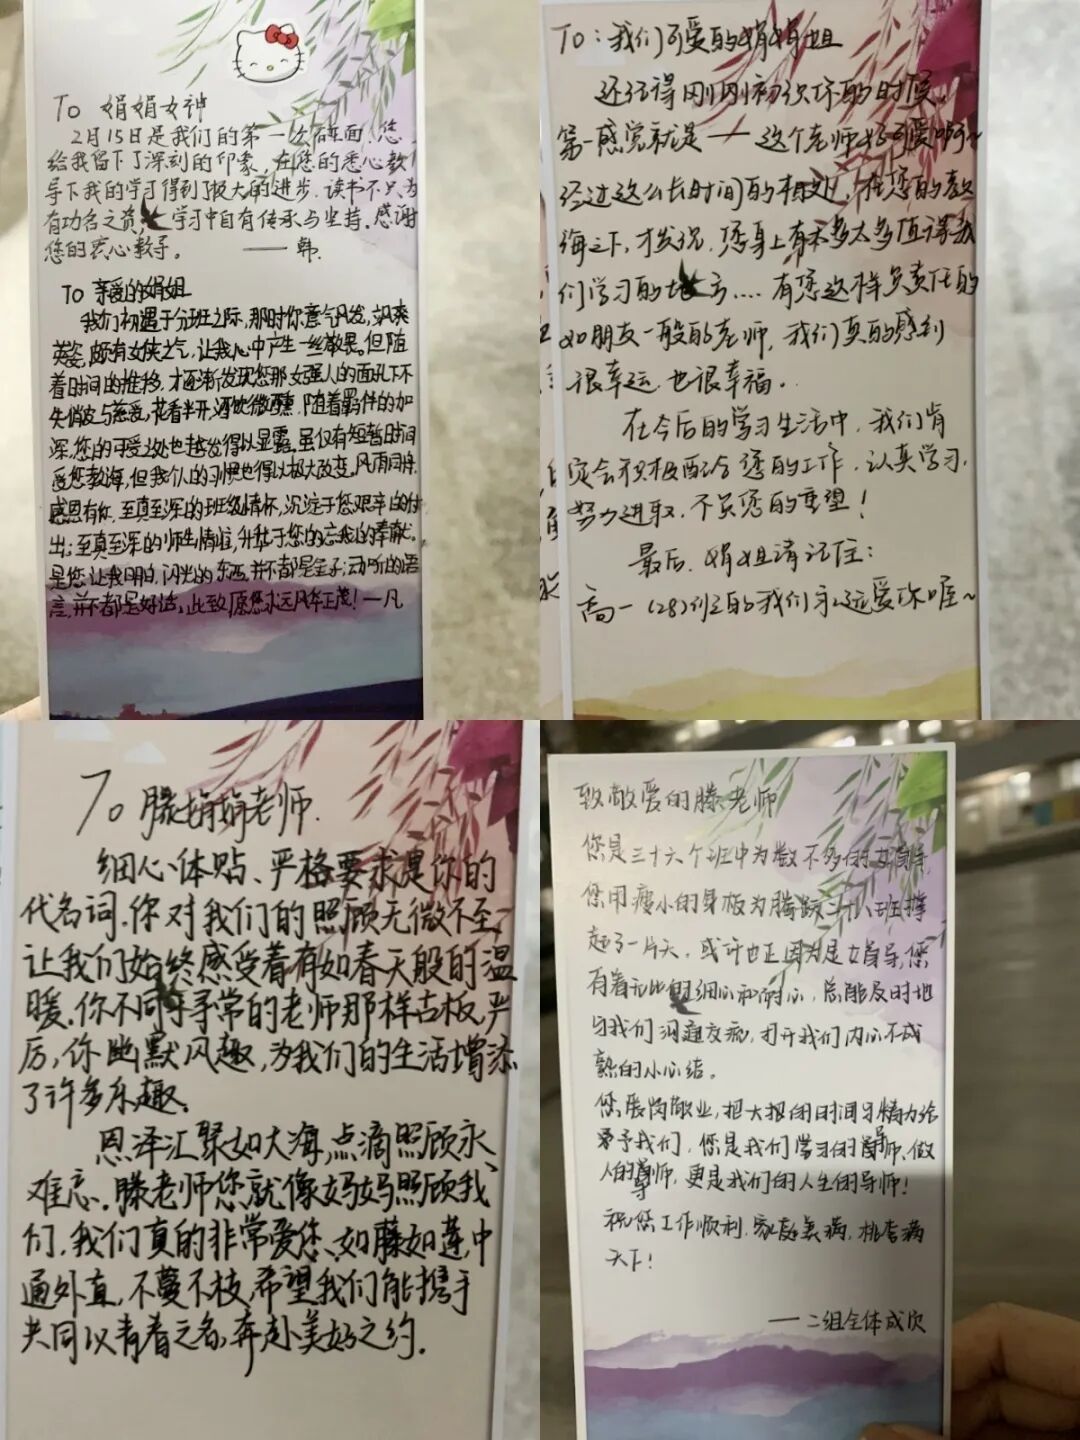 To 娟娟女神
2月15日是我们的第一次面,您
给我留下了深刻的印象,在您的悉心教
导下我的学习得到了极大的进步.读书不只为
有功名之资,学习中自有传承与坚持.感谢
您的衷心教导。 ——韩.
To 亲爱的娟姐
我们初遇于分班之际,那时你意气风发,飒爽
英姿,颇有女侠之气,让我心中产生一丝敬畏.但随
着时间的推移,才逐渐发现您那女强人的面孔下不
失俏皮与慈爱,花看半开,酒饮微醺.随着羁绊的加
深,您的可爱之处也越发得以显露.虽仅有短暂时间
受您教诲,但我个人的习惯也得以极大改变.风雨同舟,
感恩有你.至真至深的班级情怀,沉淀于您艰辛的付
出;至真至深的师生情谊,升华于您的忘我的奉献.
是您让我明白,闪光的东西,并不都是金子;动听的语
言,并不都是好话.此致 愿您永远风华正茂!—凡
To:我们可爱的娟娟姐
还记得刚刚初次你的时候,
第一感觉就是——这个老师好可爱啊~
经过这么长时间的相处,在您的教
诲之下,才发现,您身上有太多太多值得我
们学习的地方....有您这样负责任的
如朋友一般的老师,我们真的感到
很幸运,也很幸福.
在今后的学习生活中,我们肯
定会积极配合您的工作,认真学习,
努力进取,不负您的重望!
最后,娟姐请记住:
高一(28)班的我们永远爱你喔~
To 滕娟娟老师.
细心、体贴、严格要求是你的
代名词.你对我们的照顾无微不至,
让我们始终感受着有如春天般的温
暖.你不同于寻常的老师那样古板,严
厉,你幽默风趣,为我们的生活增添
了许多乐趣.
恩泽汇聚如大海,点滴照顾永
难忘.滕老师您就像妈妈照顾我
们,我们真的非常爱您、如藤如莲,中
通外直,不蔓不枝,希望我们能携手
共同以青春之名,奔赴美好之约.
致敬爱的滕老师
您是三十六个班中为数不多的女首导,
您用瘦小的身板为腾跃二十八班撑
起了一片天,或许也正因为是女首导,您
有着无比的细心和耐心,总能及时地
与我们沟通交流,打开我们内心不成
熟的小心结。
您爱岗敬业,把大把的时间与精力给
予我们,您是我们学习的导师,做
人的导师,更是我们的人生的导师!
祝您工作顺利,家庭美满,桃李满
天下!
——二组全体成员